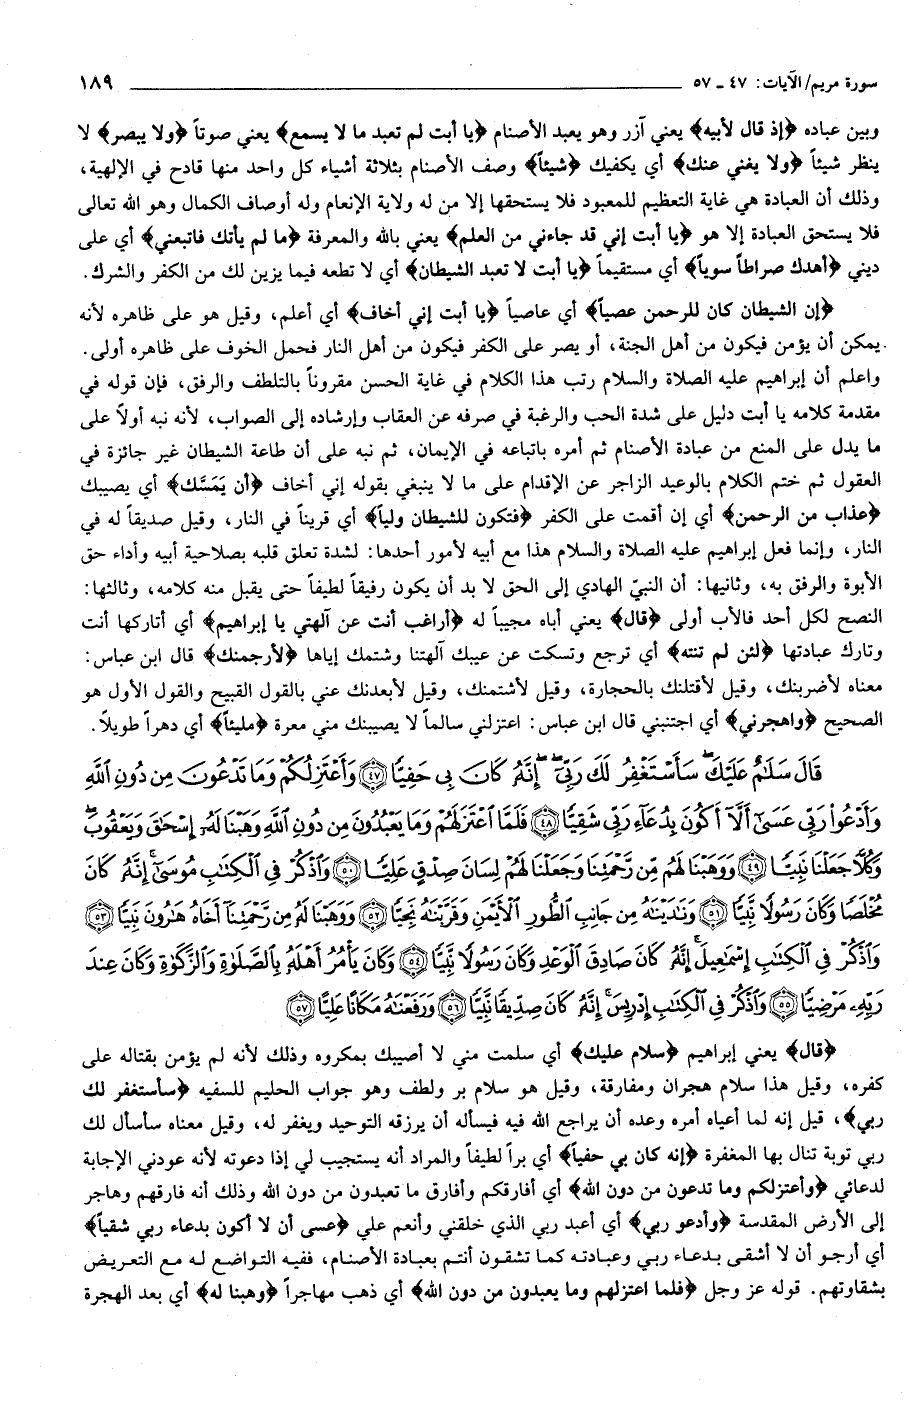 سورة مريم/ الآيات: ٤٧ ـ ٥٧ ١٨٩
وبين عباده ﴿إذ قال لأبيه﴾ يعني آزر وهو يعبد الأصنام ﴿يا أبت لم تعبد ما لا يسمع﴾ يعني صوتاً ﴿ولا يبصر﴾ لا
ينظر شيئاً ﴿ولا يغني عنك﴾ أي يكفيك ﴿شيئاً﴾ وصف الأصنام بثلاثة أشياء كل واحد منها قادح في الإلهية،
وذلك أن العبادة هي غاية التعظيم للمعبود فلا يستحقها إلا من له ولاية الإنعام وله أوصاف الكمال وهو الله تعالى
فلا يستحق العبادة إلا هو ﴿يا أبت إني قد جاءني من العلم﴾ يعني بالله والمعرفة ﴿ما لم يأتك فاتبعني﴾ أي على
ديني ﴿أهدك صراطاً سوياً﴾ أي مستقيماً ﴿يا أبت لا تعبد الشيطان﴾ أي لا تطعه فيما يزين لك من الكفر والشرك.
﴿إن الشيطان كان للرحمن عصياً﴾ أي عاصياً ﴿يا أبت إني أخاف﴾ أي أعلم، وقيل هو على ظاهره لأنه
يمكن أن يؤمن فيكون من أهل الجنة، أو يصر على الكفر فيكون من أهل النار فحمل الخوف على ظاهره أولى.
واعلم أن إبراهيم عليه الصلاة والسلام رتب هذا الكلام في غاية الحسن مقروناً بالتلطف والرفق، فإن قوله في
مقدمة كلامه يا أبت دليل على شدة الحب والرغبة في صرفه عن العقاب وإرشاده إلى الصواب، لأنه نبه أولاً على
ما يدل على المنع من عبادة الأصنام ثم أمره باتباعه في الإيمان، ثم نبه على أن طاعة الشيطان غير جائزة في
العقول ثم ختم الكلام بالوعيد الزاجر عن الإقدام على ما لا ينبغي بقوله إني أخاف ﴿أن يَمَسَّك﴾ أي يصيبك
﴿عذاب من الرحمن﴾ أي إن أقمت على الكفر ﴿فتكون للشيطان ولياً﴾ أي قريناً في النار، وقيل صديقاً له في
النار، وإنما فعل إبراهيم عليه الصلاة والسلام هذا مع أبيه لأمور أحدها: لشدة تعلق قلبه بصلاحية أبيه وأداء حق
الأبوة والرفق به، وثانيها: أن النبيّ الهادي إلى الحق لا بد أن يكون رفيقاً لطيفاً حتى يقبل منه كلامه، وثالثها:
النصح لكل أحد فالأب أولى ﴿قال﴾ يعني أباه مجيباً له ﴿أراغب أنت عن آلهتي يا إبراهيم﴾ أي أتاركها أنت
وتارك عبادتها ﴿لئن لم تنته﴾ أي ترجع وتسكت عن عيبك آلهتنا وشتمك إياها ﴿لأرجمنك﴾ قال ابن عباس:
معناه لأضربنك، وقيل لأقتلنك بالحجارة، وقيل لأشتمنك، وقيل لأبعدنك عني بالقول القبيح والقول الأول هو
الصحيح ﴿واهجرني﴾ أي اجتنبني قال ابن عباس: اعتزلني سالماً لا يصيبنك مني معرة ﴿ملياً﴾ أي دهراً طويلاً.
قَالَ سَلَٰمٌ عَلَيْكَ ۖ سَأَسْتَغْفِرُ لَكَ رَبِّيٓ ۖ إِنَّهُۥ كَانَ بِى حَفِيًّا ﴿٤٧﴾ وَأَعْتَزِلُكُمْ وَمَا تَدْعُونَ مِن دُونِ ٱللَّهِ
وَأَدْعُوا۟ رَبِّى عَسَىٰٓ أَلَّآ أَكُونَ بِدُعَآءِ رَبِّى شَقِيًّا ﴿٤٨﴾ فَلَمَّا ٱعْتَزَلَهُمْ وَمَا يَعْبُدُونَ مِن دُونِ ٱللَّهِ وَهَبْنَا لَهُۥٓ إِسْحَٰقَ وَيَعْقُوبَ ۖ
وَكُلًّا جَعَلْنَا نَبِيًّا ﴿٤٩﴾ وَوَهَبْنَا لَهُم مِّن رَّحْمَتِنَا وَجَعَلْنَا لَهُمْ لِسَانَ صِدْقٍ عَلِيًّا ﴿٥٠﴾ وَٱذْكُرْ فِى ٱلْكِتَٰبِ مُوسَىٰٓ ۚ إِنَّهُۥ كَانَ
مُخْلَصًا وَكَانَ رَسُولًا نَّبِيًّا ﴿٥١﴾ وَنَٰدَيْنَٰهُ مِن جَانِبِ ٱلطُّورِ ٱلْأَيْمَنِ وَقَرَّبْنَٰهُ نَجِيًّا ﴿٥٢﴾ وَوَهَبْنَا لَهُۥ مِن رَّحْمَتِنَآ أَخَاهُ هَٰرُونَ نَبِيًّا ﴿٥٣﴾
وَٱذْكُرْ فِى ٱلْكِتَٰبِ إِسْمَٰعِيلَ ۚ إِنَّهُۥ كَانَ صَادِقَ ٱلْوَعْدِ وَكَانَ رَسُولًا نَّبِيًّا ﴿٥٤﴾ وَكَانَ يَأْمُرُ أَهْلَهُۥ بِٱلصَّلَوٰةِ وَٱلزَّكَوٰةِ وَكَانَ عِندَ
رَبِّهِۦ مَرْضِيًّا ﴿٥٥﴾ وَٱذْكُرْ فِى ٱلْكِتَٰبِ إِدْرِيسَ ۚ إِنَّهُۥ كَانَ صِدِّيقًا نَّبِيًّا ﴿٥٦﴾ وَرَفَعْنَٰهُ مَكَانًا عَلِيًّا ﴿٥٧﴾
﴿قال﴾ يعني إبراهيم ﴿سلام عليك﴾ أي سلمت مني لا أصيبك بمكروه وذلك لأنه لم يؤمن بقتاله على
كفره، وقيل هذا سلام هجران ومفارقة، وقيل هو سلام بر ولطف وهو جواب الحليم للسفيه ﴿سأستغفر لك
ربي﴾، قيل إنه لما أعياه أمره وعده أن يراجع الله فيه فيسأله أن يرزقه التوحيد ويغفر له، وقيل معناه سأسأل لك
ربي توبة تنال بها المغفرة ﴿إنه كان بي حفياً﴾ أي براً لطيفاً والمراد أنه يستجيب لي إذا دعوته لأنه عودني الإجابة
لدعائي ﴿وأعتزلكم وما تدعون من دون الله﴾ أي أفارقكم وأفارق ما تعبدون من دون الله وذلك أنه فارقهم وهاجر
إلى الأرض المقدسة ﴿وأدعو ربي﴾ أي أعبد ربي الذي خلقني وأنعم علي ﴿عسى أن لا أكون بدعاء ربي شقياً﴾
أي أرجو أن لا أشقى بدعاء ربي وعبادته كما تشقون أنتم بعبادة الأصنام، ففيه التواضع له مع التعريض
بشقاوتهم. قوله عز وجل ﴿فلما اعتزلهم وما يعبدون من دون الله﴾ أي ذهب مهاجراً ﴿وهبنا له﴾ أي بعد الهجرة